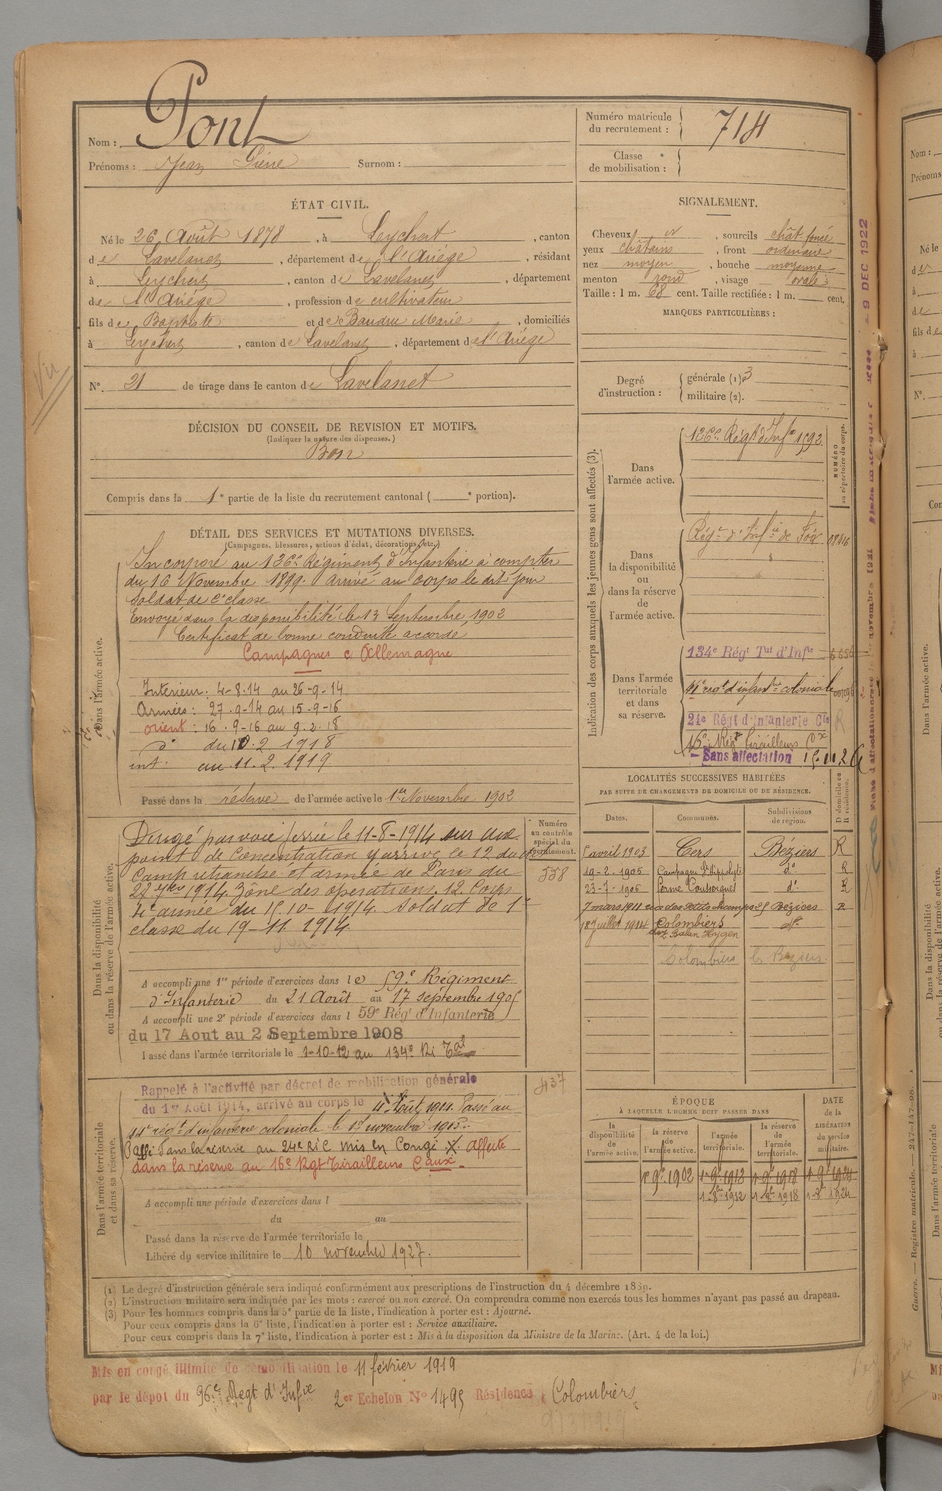 Nom : Pont
Prénoms : Jean Pierre Surnom :
Numéro matricule du recrutement : 714
Classe de mobilisation :
ÉTAT CIVIL.
Né le 26 Août 1878, à Leychert, canton
de Lavelanet, département de l'Ariège, résidant
à Leychert, canton de Lavelanet, département
de l'Ariège, profession de cultivateur
fils de Baptiste et de Baudru Marie, domiciliés
à Leychert, canton de Lavelanet, département de l'Ariège
N° 21 de tirage dans le canton de Lavelanet
SIGNALEMENT.
Cheveux, sourcils chât foncé
yeux châtains, front ordinaire
nez moyen, bouche moyenne
menton rond, visage ovale
Taille : 1 m. 68 cent. Taille rectifiée : 1 m. cent.
MARQUES PARTICULIÈRES :
Degré d'instruction : générale (1) 3
militaire (2).
DÉCISION DU CONSEIL DE REVISION ET MOTIFS.
(Indiquer la nature des dispenses.)
Bon
Compris dans la 1e partie de la liste du recrutement cantonal ( e portion).
DÉTAIL DES SERVICES ET MUTATIONS DIVERSES.
(Campagnes, blessures, actions d'éclat, décorations, etc.)
Dans l'armée active.
Incorporé au 136e Régiment d'Infanterie à compter
du 16 Novembre 1899. Arrivé au corps le dit jour
Soldat de 2e classe
Envoyé dans la disponibilité le 13 Septembre 1902
Certificat de bonne conduite accordé
Campagnes c Allemagne
Intérieur : 4-8-14 au 26-9-14
Armées : 27-9-14 au 15-9-16
orient : 16-9-16 au 9-2-18
d° du 10-2 1918
int. au 11-2-1919
Passé dans la réserve de l'armée active le 1er Novembre 1902
Dans la disponibilité ou dans la réserve de l'armée active.
Numéro au contrôle spécial du recrutement.
558
Dirigé par voie ferrée le 11-8-1914 sur un
point de concentration y arrive le 12 du dt
Camp retranché et armée de Paris du
22 7bre 1914 Zône des opérations 12 Corps
4e armée du 15-10-1914. Soldat de 1e
classe du 19-11 1914
A accompli une 1re période d'exercices dans le 59e Régiment
d'Infanterie du 21 Août au 17 septembre 1905
A accompli une 2e période d'exercices dans l 59e Rég d'Infanterie
du 17 Aout au 2 Septembre 1908
Passé dans l'armée territoriale le 1-10-12 au 134e Ri Tal
Dans l'armée territoriale et dans sa réserve.
437
Rappelé à l'activité par décret de mobilisation générale
du 1er Août 1914, arrivé au corps le 11 Août 1914. Passé au
régt d'infanterie coloniale le 1er novembre
Passé dans la réserve au 24e RIC mis en Congé X. affecté
dans la réserve au 16e Rgt Tirailleurs Caux.
A accompli une période d'exercices dans l
du au
Passé dans la réserve de l'armée territoriale le
Libéré du service militaire le 10 novembre 1927.
Indication des corps auxquels les jeunes gens sont affectés (3).
NUMÉRO au répertoire du corps.
Dans l'armée active.
136e Régt d'Infie 1592
Dans la disponibilité ou dans la réserve de l'armée active.
Régt d'Infie de Foix
Dans l'armée territoriale et dans sa réserve.
134e Régt Tal d'Infie
régt d'infanterie coloniale
24e Régt d'Infanterie Cle
16e Régt Tirailleurs Cx
Sans affectation
9 DEC 1922
LOCALITÉS SUCCESSIVES HABITÉES
PAR SUITE DE CHANGEMENTS DE DOMICILE OU DE RÉSIDENCE.
Dates. Communes. Subdivisions de région. D domicile ou R résidence.
5 avril 1903 Cers Béziers R
19-2-1905 d° R
23-1-1906 d° R
7 mars 1911 Béziers R
18 juillet 1914 Colombiers d°
Colombiers Béziers
ÉPOQUE
À LAQUELLE L'HOMME DOIT PASSER DANS
la disponibilité de l'armée active.
la réserve de l'armée active.
l'armée territoriale.
la réserve de l'armée territoriale.
DATE de la LIBÉRATION du service militaire.
1 9bre 1902 1 9bre 1912 1 9bre 1918 1 9bre 1924
1 8bre 1912 1 8bre 1918 1 8bre 1924
(1) Le degré d'instruction générale sera indiqué conformément aux prescriptions de l'instruction du 4 décembre 1889.
(2) L'instruction militaire sera indiquée par les mots : exercé ou non exercé. On comprendra comme non exercés tous les hommes n'ayant pas passé au drapeau.
(3) Pour les hommes compris dans la 5e partie de la liste, l'indication à porter est : Ajourné.
Pour ceux compris dans la 6e liste, l'indication à porter est : Service auxiliaire.
Pour ceux compris dans la 7e liste, l'indication à porter est : Mis à la disposition du Ministre de la Marine. (Art. 4 de la loi.)
Mis en congé illimité de démobilisation le 11 février 1919
par le dépôt du 96e Regt d'Infie 2er Echelon N° 1495 Résidence Colombiers